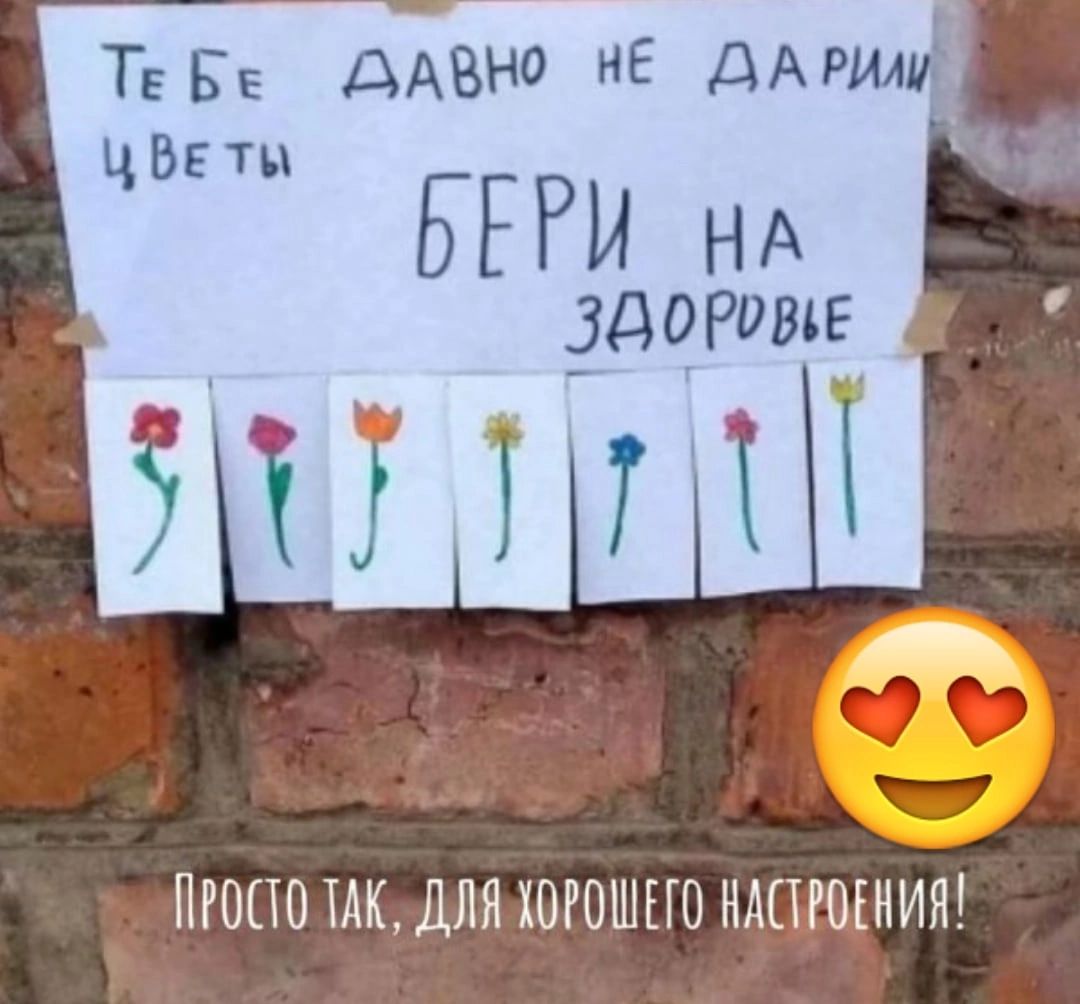 ТЕБЕ ДАВНО НЕ ДАРИЛИ
ЦВЕТЫ
БЕРИ НА
ЗДОРОВЬЕ
Просто так, для хорошего настроения!